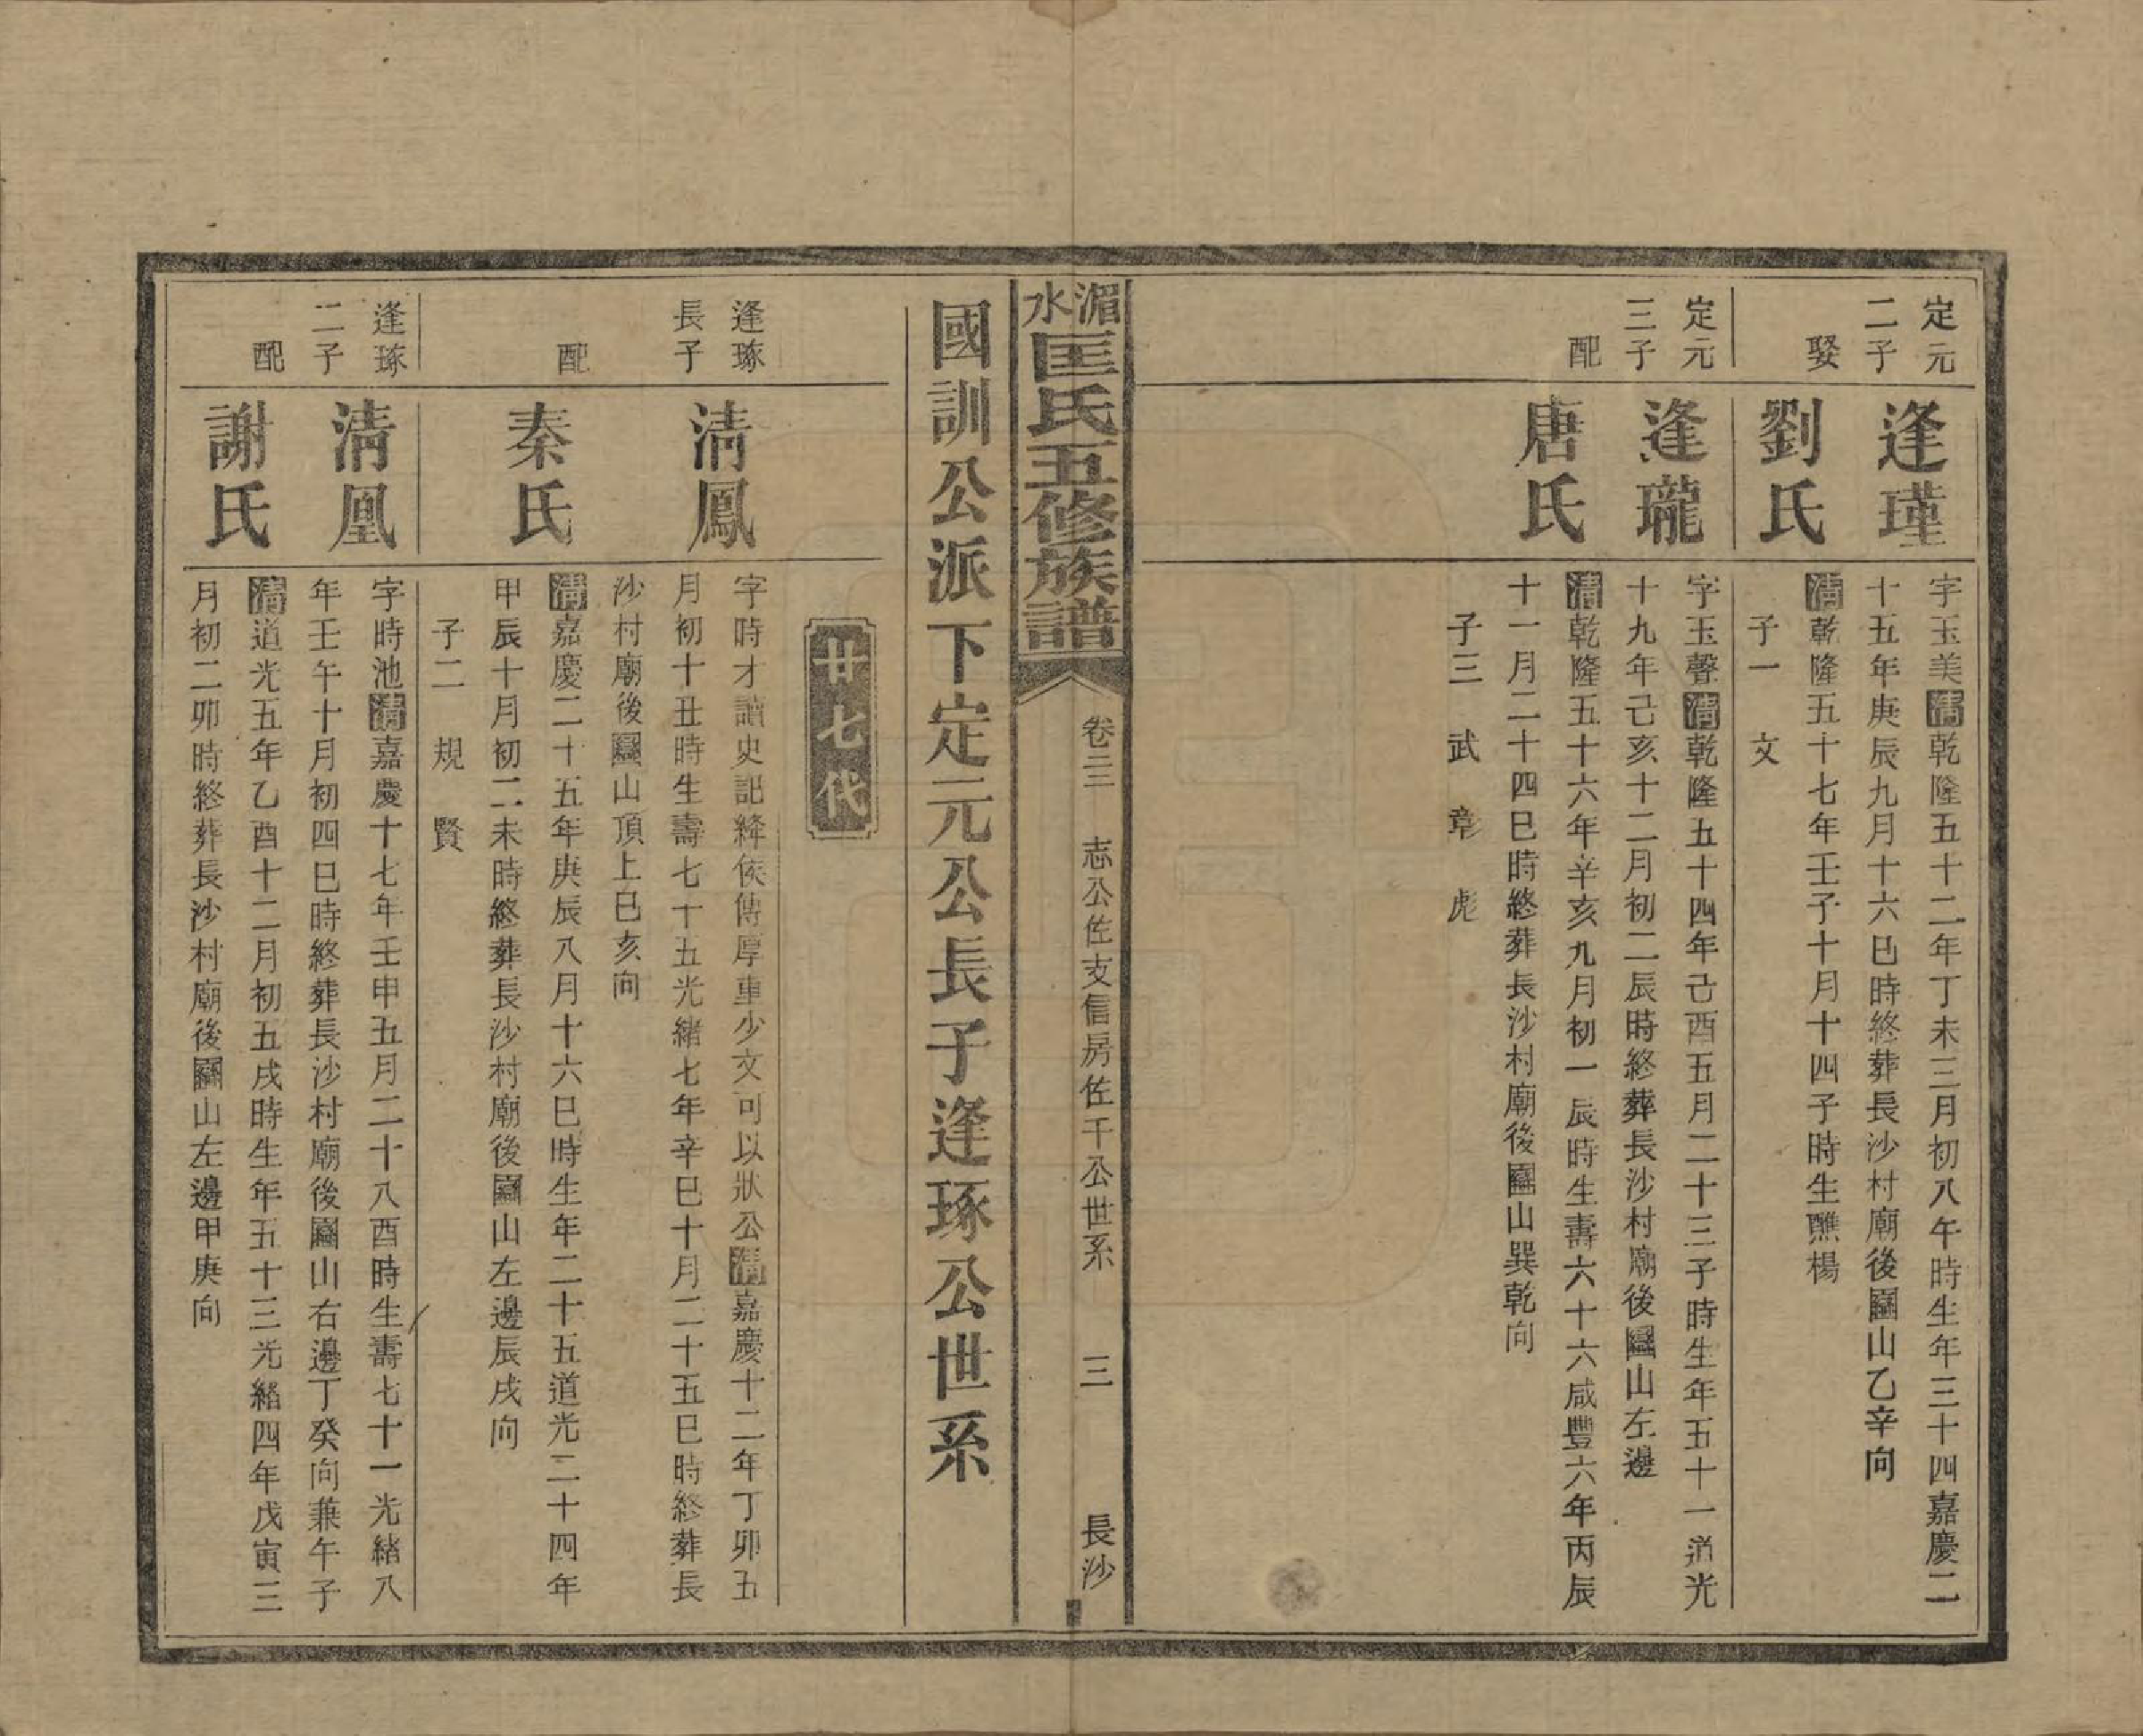 定元
二子
逢瑾
字玉美清乾隆五十二年丁未三月初八午時生年三十四嘉慶二
十五年庚辰九月十六巳時終葬長沙村廟後山乙辛向
娶
劉氏
清乾隆五十七年壬子十月十四子時生醮楊
子一　文
定元
三子
逢瓏
字玉聲清乾隆五十四年己酉五月二十三子時生年五十一道光
十九年己亥十二月初二辰時終葬長沙村廟後山左邊
配
唐氏
清乾隆五十六年辛亥九月初一辰時生壽六十六咸豐六年丙辰
十一月二十四巳時終葬長沙村廟後山巽乾向
子三　武　章　彪
湄水匡氏五修族譜
卷三　志公佐支信房佐千公世系　三　長沙
國訓公派下定元公長子逢琢公世系
廿七代
逢琢
長子
清鳳
字時才讀史記絳侯傳厚重少文可以狀公清嘉慶十二年丁卯五
月初十丑時生壽七十五光緒七年辛巳十月二十五巳時終葬長
沙村廟後山頂上巳亥向
配
秦氏
清嘉慶二十五年庚辰八月十六巳時生年二十五道光二十四年
甲辰十月初二未時終葬長沙村廟後山左邊辰戌向
子二　規　賢
逢琢
二子
清凰
字時池清嘉慶十七年壬申五月二十八酉時生壽七十一光緒八
年壬午十月初四巳時終葬長沙村廟後山右邊丁癸向兼午子
配
謝氏
清道光五年乙酉十二月初五戌時生年五十三光緒四年戊寅三
月初二卯時終葬長沙村廟後山左邊甲庚向